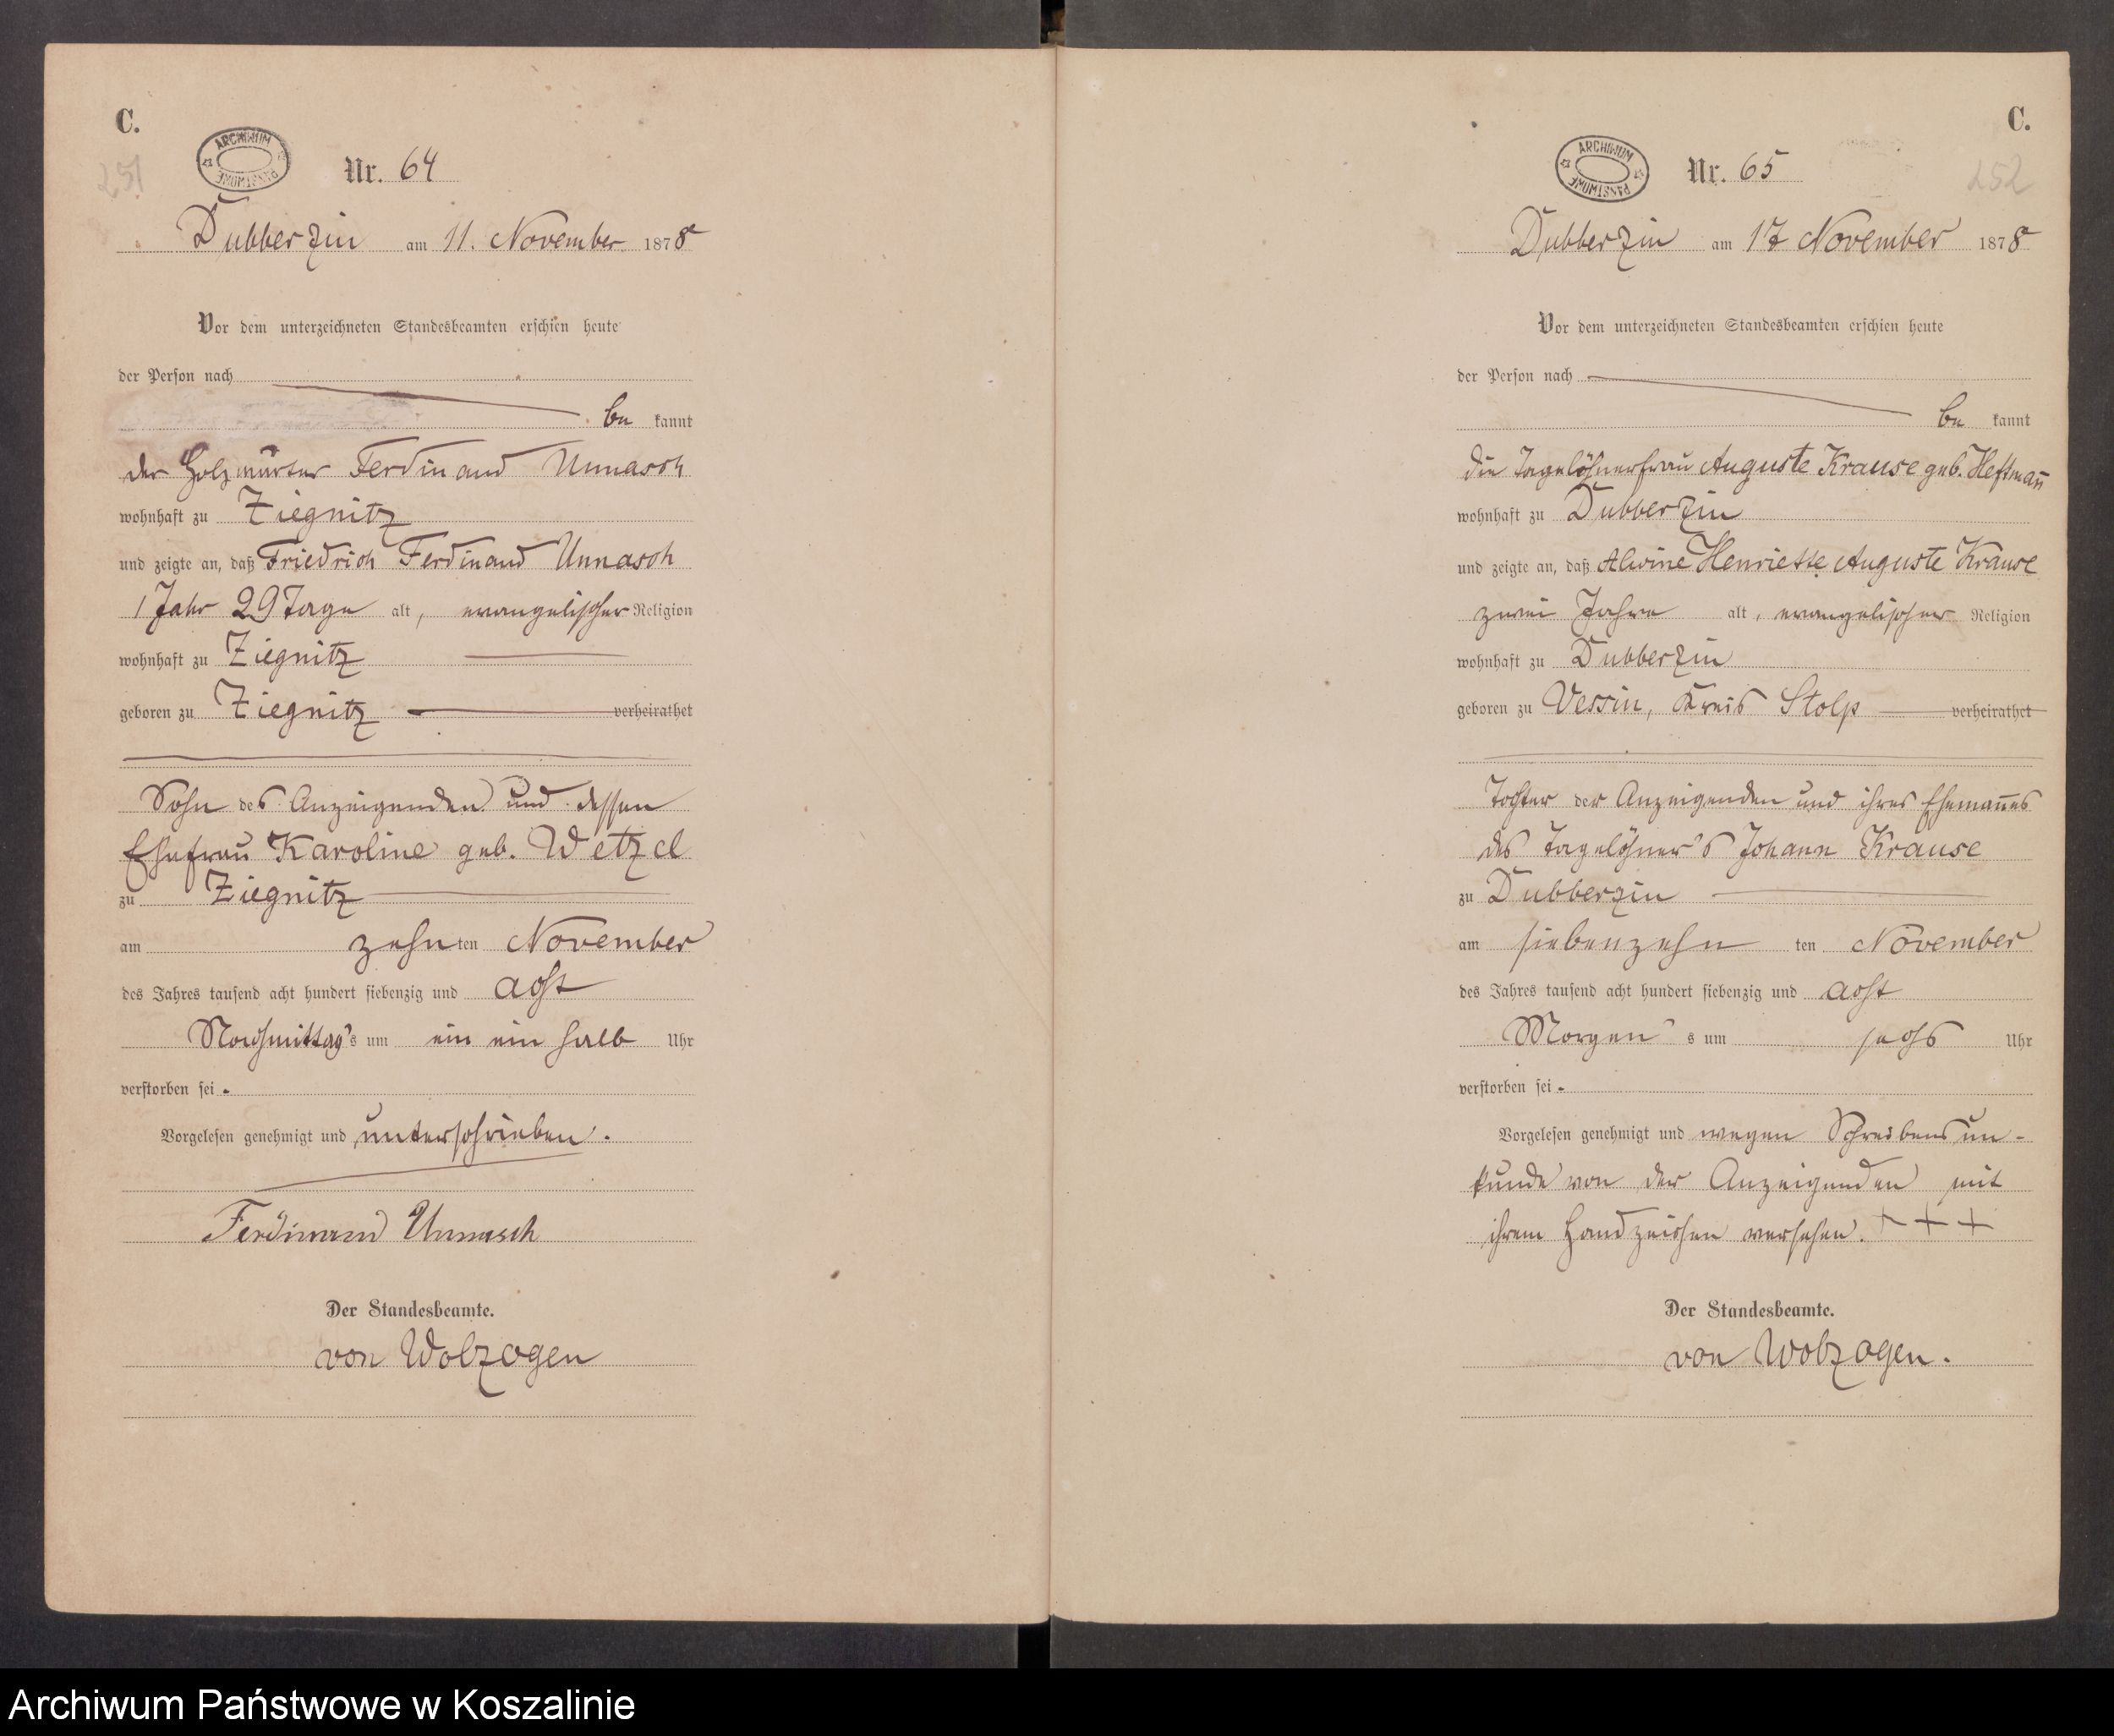 C.
251
ARCHIWUM PAŃSTWOWE
Nr. 64
Dubberzin am 11. November 1878
Vor dem unterzeichneten Standesbeamten erschien heute
der Person nach
be kannt
der Holzwärter Ferdinand Unnasch
wohnhaft zu Ziegnitz
und zeigte an, daß Friedrich Ferdinand Unnasch
1 Jahr 29 Tage alt, evangelischer Religion
wohnhaft zu Ziegnitz
geboren zu Ziegnitz verheirathet
Sohn des Anzeigenden und dessen
Ehefrau Karoline geb. Wetzel
zu Ziegnitz
am zehnten November
des Jahres tausend acht hundert siebenzig und acht
Nachmittag's um ein ein halb Uhr
verstorben sei.
Vorgelesen genehmigt und unterschrieben.
Ferdinand Unnasch
Der Standesbeamte.
von Wolzogen
C.
252
ARCHIWUM PAŃSTWOWE
Nr. 65
Dubberzin am 17 November 1878
Vor dem unterzeichneten Standesbeamten erschien heute
der Person nach
be kannt
die Tagelöhnerfrau Auguste Krause geb. Heftman̄
wohnhaft zu Dubberzin
und zeigte an, daß Alwine Henriette Auguste Krause
zwei Jahre alt, evangelischer Religion
wohnhaft zu Dubberzin
geboren zu Vessin, Kreis Stolp verheirathet
Tochter der Anzeigenden und ihres Eheman̄es
des Tagelöhner's Johann Krause
zu Dubberzin
am siebenzehn ten November
des Jahres tausend acht hundert siebenzig und acht
Morgen's um sechs Uhr
verstorben sei.
Vorgelesen genehmigt und wegen Schreibensun-
kunde von der Anzeigenden mit
ihrem Handzeichen versehen. + + +
Der Standesbeamte.
von Wolzogen.
Archiwum Państwowe w Koszalinie